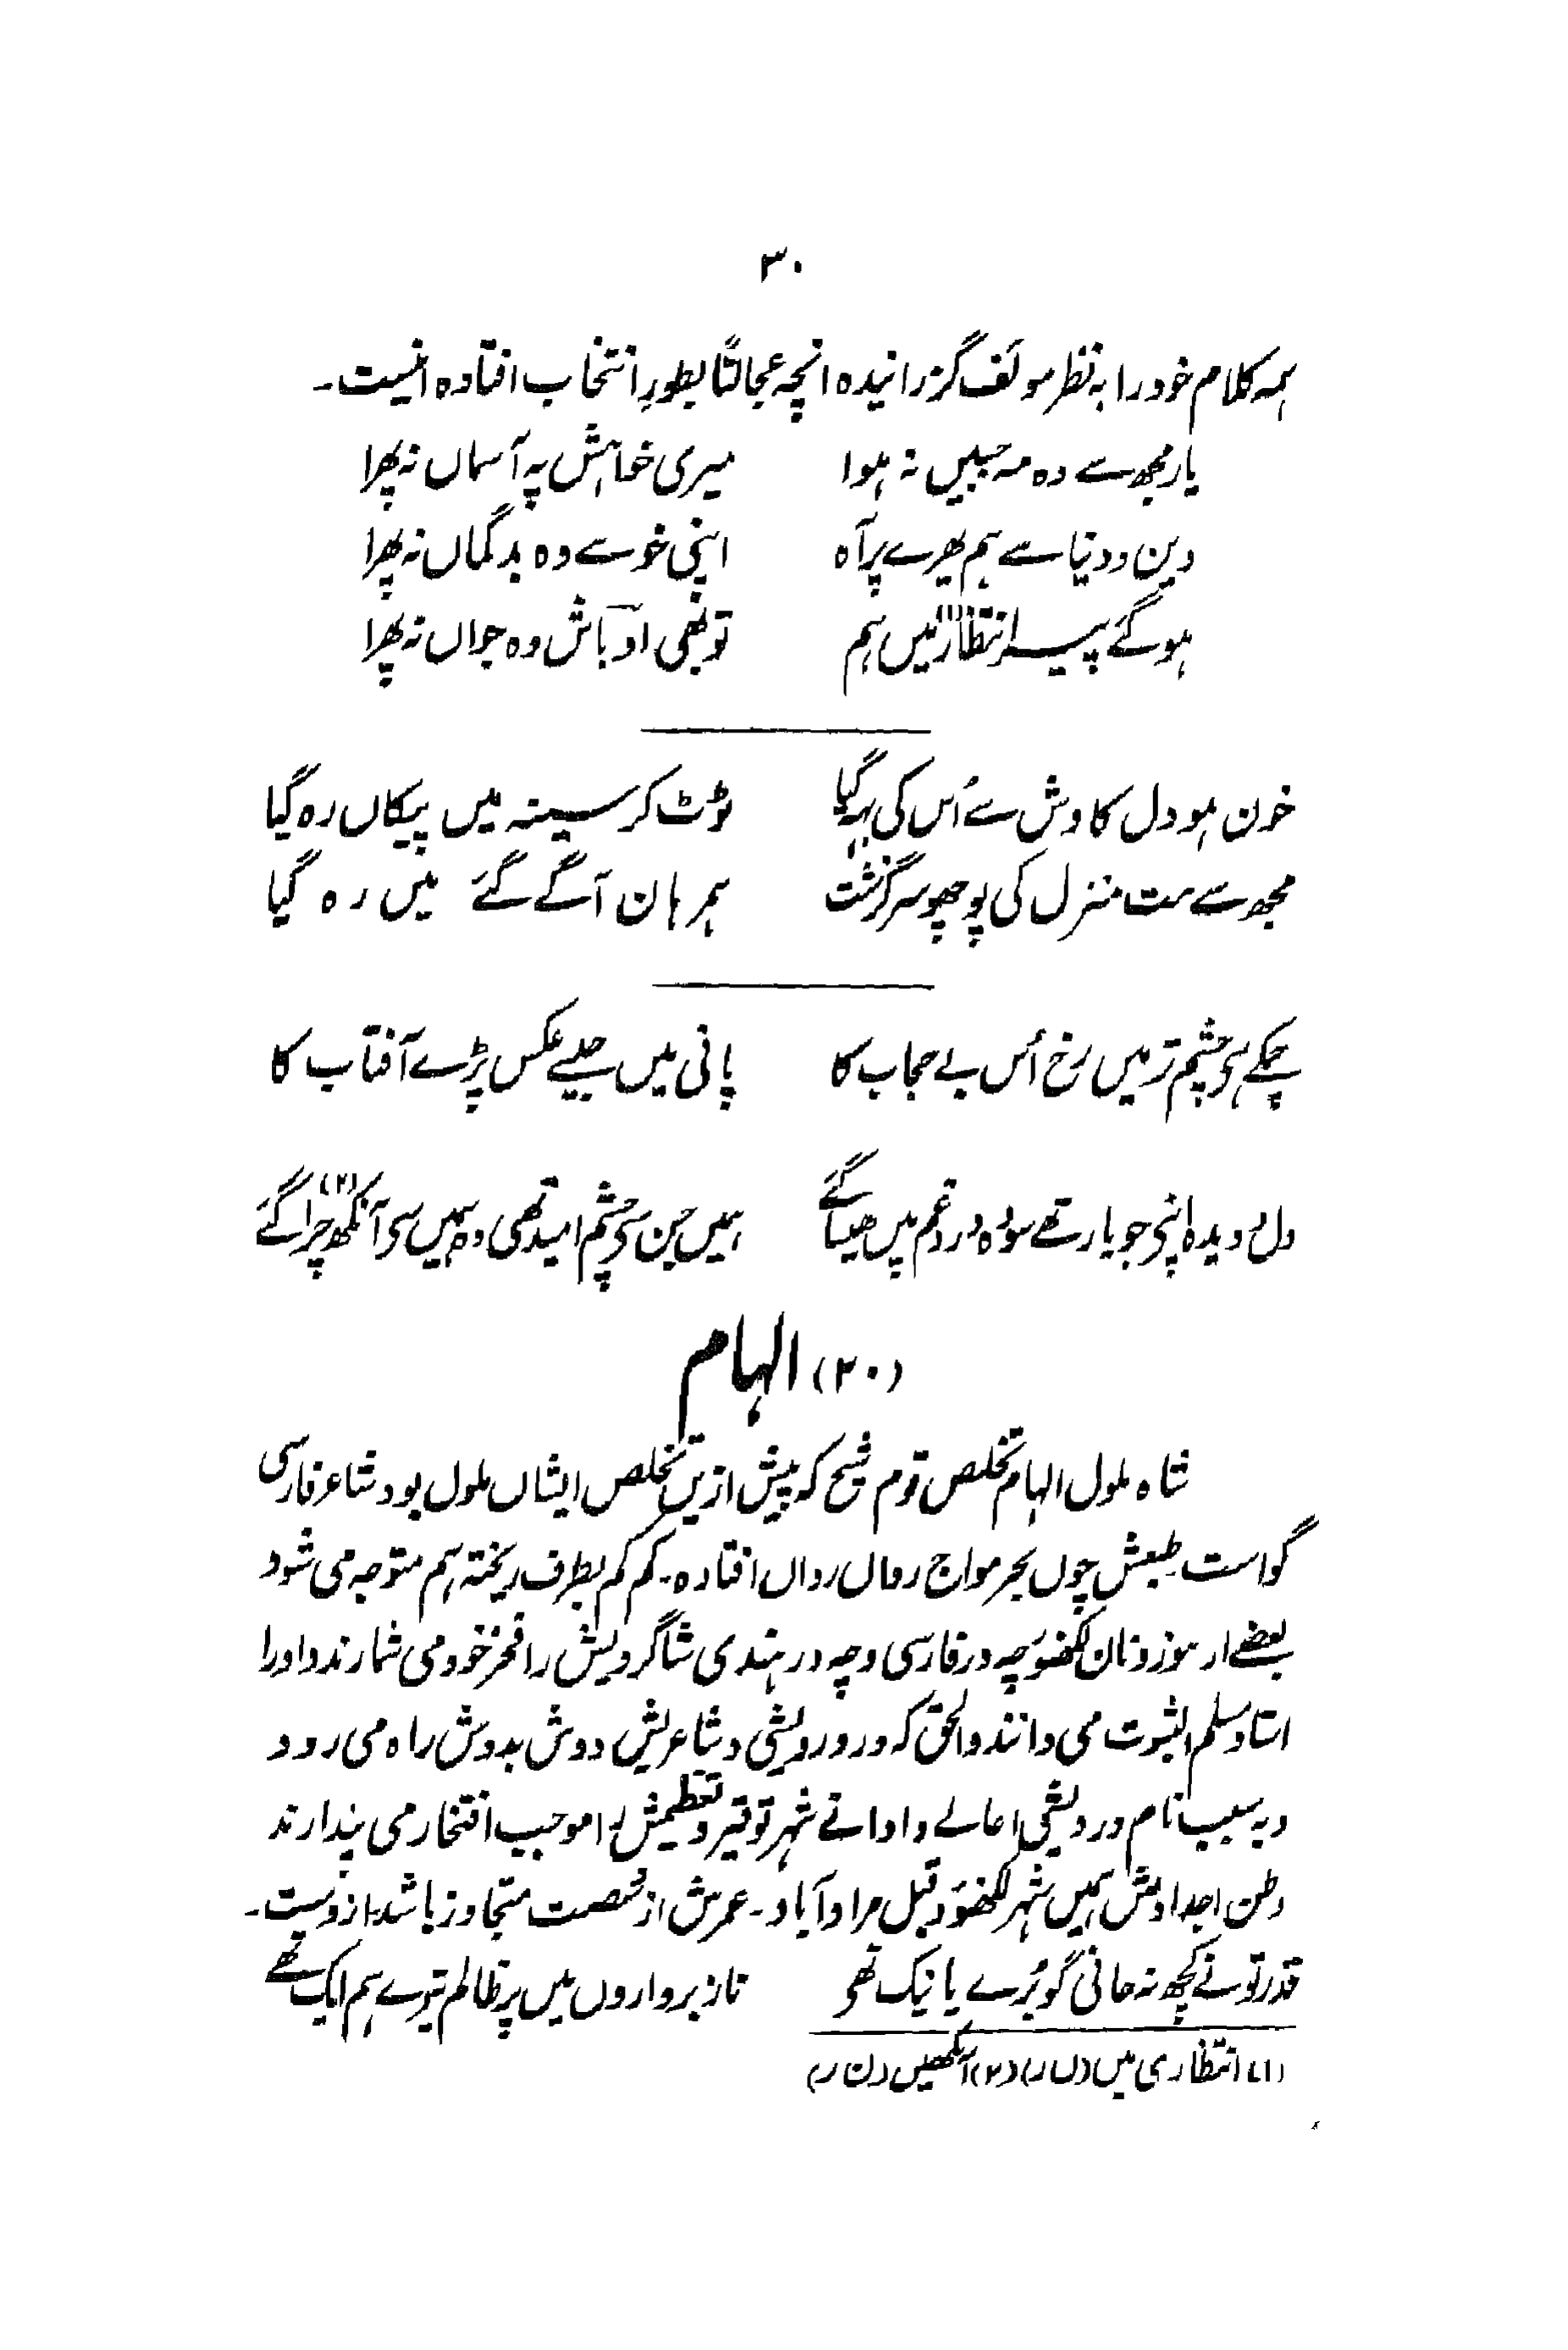 ۳۰
ہمہ کلام خود را بہ نظر مولف گزرانیدہ انچہ عجالتًا بطورِ انتخاب افتادہ انیست۔
یار مجھ سے وہ مہ جبیں نہ ہوا میری خواہش پہ آسماں نہ پھرا
دین و دنیا سے ہم پھرے پر آہ اپنی خو سے وہ بدگماں نہ پھرا
ہو گئے پیر انتظار(۱) میں ہم تو بھی اوباش وہ جواں نہ پھرا
خون ہو دل کاوش سے اُس کی بہہ گیا ٹوٹ کر سینہ میں پیکاں رہ گیا
مجھ سے مت منزل کی پوچھو سرگزشت ہمرہان آگے گئے میں رہ گیا
چمکے ہی چشم تر میں رخ اُس بے حجاب کا پانی میں جیسے عکس پڑے آفتاب کا
دل و دیدہ اپنی جو یار تھے سو وہ درد غم میں پھنسا گئے ہمیں جن سی چشم امید تھی وہ ہمیں سی آنکھ(۲) چرا گئے
(۲۰) الہام
شاہ ملول الہام تخلص قوم شیخ کہ پیش ازیں تخلص ایشاں ملول بود شاعر فارسی
گو است طبعش چوں بحر مواج رواں افتادہ۔ کم کم بطرف ریختہ ہم متوجہ می شود
بعضے از موزونان لکھنؤ چہ در فارسی و چہ در ہندی شاگردیش را فخر خود می شمارند و او را
استاد مسلم الثبوت می دانند والحق کہ در درویشی و شاعریش دوش بدوش راہ می رود
و بہ سبب نام درویشی اعالے و ادانے شہر توقیر و تعظیمش را موجب افتخار می پندارند
وطن اجدادش ہمیں شہر لکھنؤ و قبل مرادآباد۔ عمرش از شصت متجاوز باشد۔ ازوست۔
قدر تو نے کچھ نہ جانی گو بُرے یا نیک تھے ناز برداروں میں پر ظالم تیرے ہم ایک تھے
(۱) انتظاری میں (ل ر) (۲) آنکھیں (ن ر)